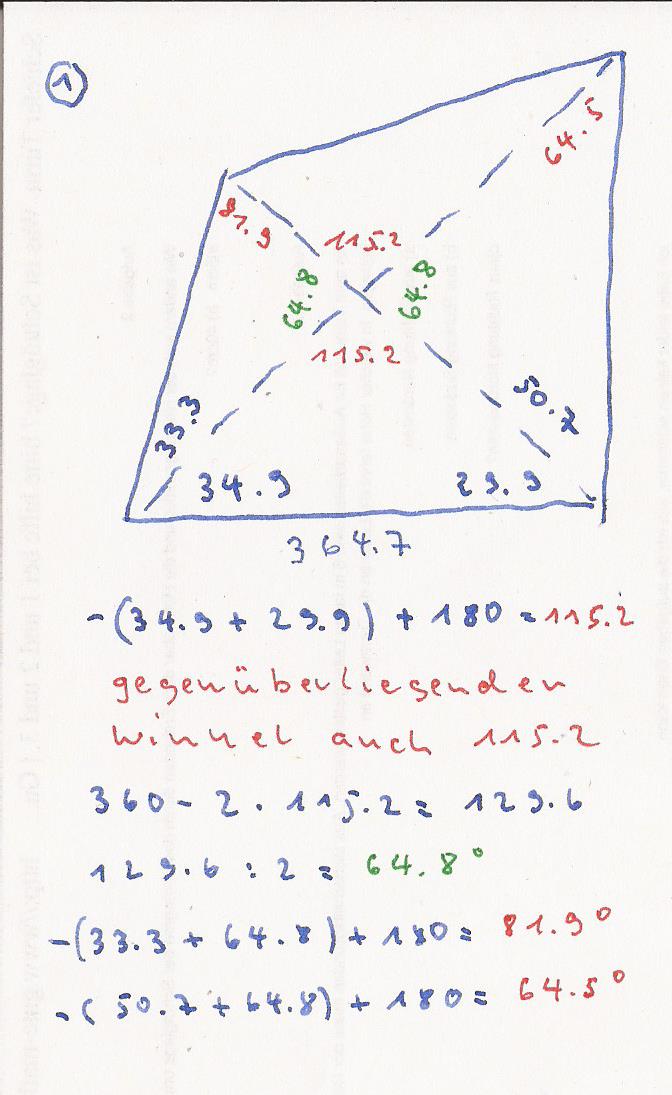 1
64.5
81.9
115.2
64.8
64.8
115.2
33.3
50.7
34.9
29.9
364.7
-(34.9 + 29.9) + 180 = 115.2
gegenüberliegenden
Winkel auch 115.2
360 - 2 · 115.2 = 129.6
129.6 : 2 = 64.8°
-(33.3 + 64.8) + 180 = 81.9°
-(50.7 + 64.8) + 180 = 64.5°